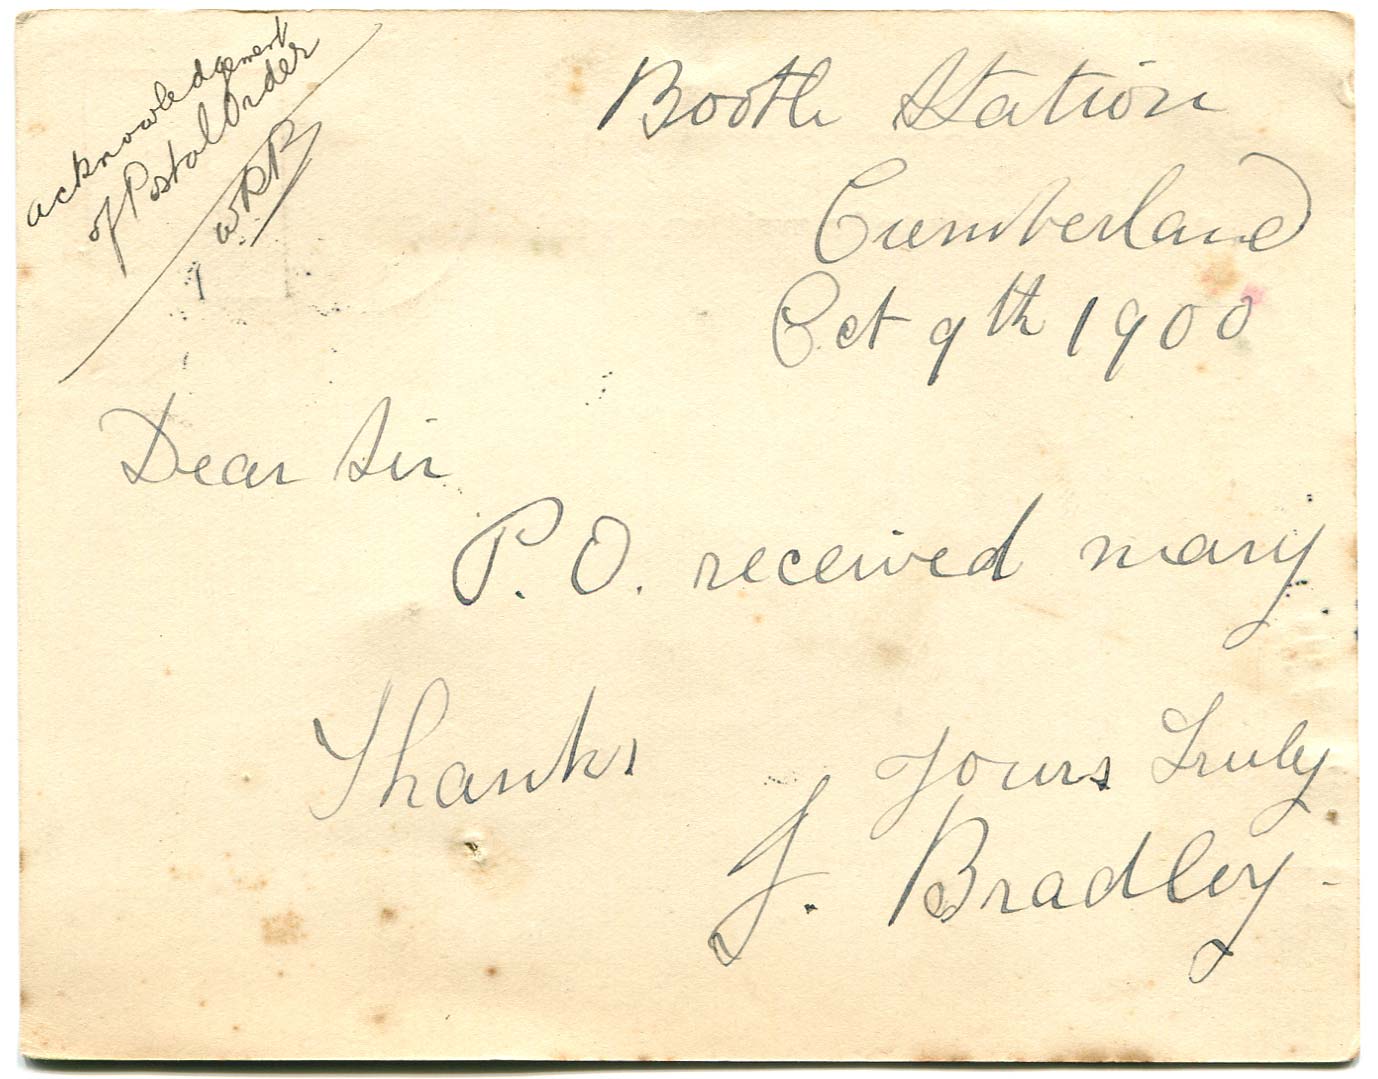 acknowledgement
of Postal Order
W.R.B
Bootle Station
Cumberland
Oct 9th 1900
Dear Sir
P.O. received many
Thanks
Yours Truly
J. Bradley